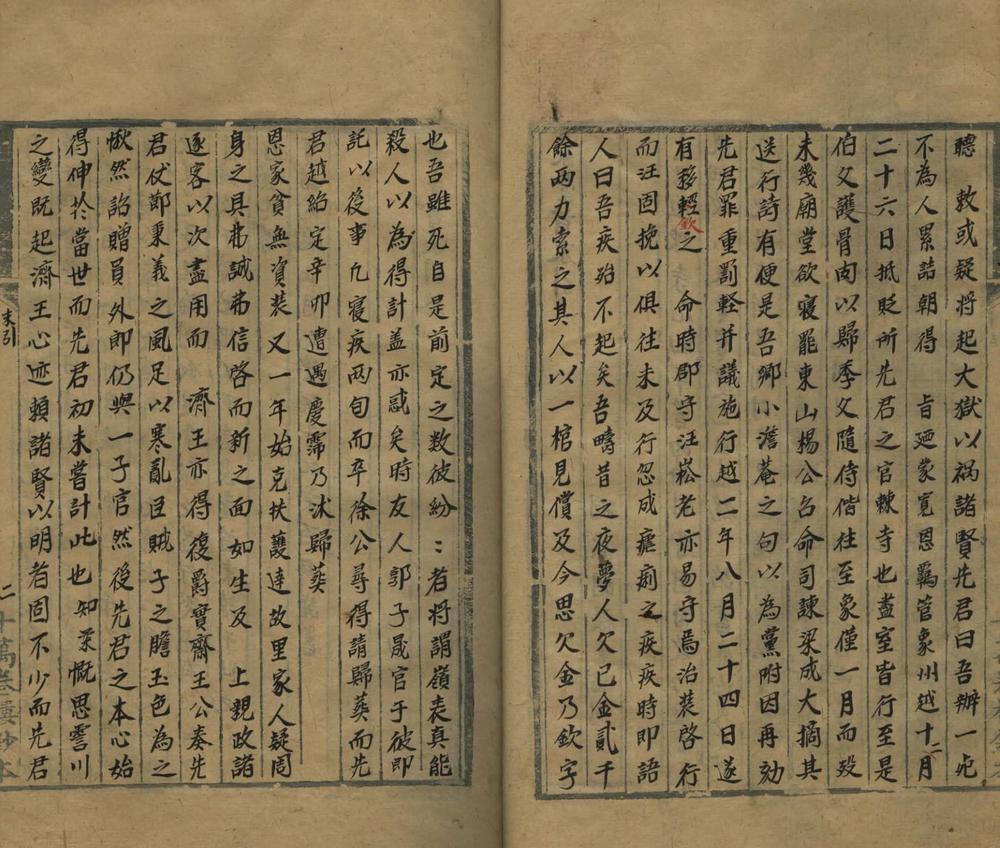 聽　敕或疑将起大獄以禍諸賢先君曰吾辦一死
不為人累詰朝得　旨廼蒙寛恩羈管象州越十二月
二十六日抵貶所先君之官棘寺也盡室皆行至是
伯父護骨肉以歸季父隨侍偕往至象僅一月而殁
未幾廟堂欲寝罷東山楊公召命司諫梁成大摘其
送行詩有便是吾鄉小澹菴之句以為黨附因再劾
先君罪重罰軽并議施行越二年八月二十四日遂
有移輕欽之　命時郡守汪崧老亦易守焉治装啓行
而汪固挽以俱往未及行忽成瘧痢之疾疾時即語
人曰吾疾殆不起矣吾疇昔之夜夢人欠已金貳千
餘两力索之其人以一棺見償及今思欠金乃欽字
也吾雖死自是前定之数彼紛：者将謂嶺表真能
殺人以為得計盖亦惑矣時友人郭子晟官于彼即
託以後事凢寝疾两旬而卒徐公尋得請歸葬而先
君越紹定辛卯遭遇慶霈乃沭歸葬
恩家貧無資装又一年始克扶護達故里家人疑周
身之具弗誠弗信啓而新之面如生及　上親政諸
逐客以次盡用而　濟王亦得復爵實齋王公奏先
君仗節秉義之風足以寒亂臣賊子之膽玉色為之
愀然詔贈員外郎仍與一子官然後先君之本心始
得伸扵當世而先君初未嘗計此也知栗慨思霅川
之變既起濟王心迹賴諸賢以明者固不少而先君
末引
二
十萬卷樓鈔本